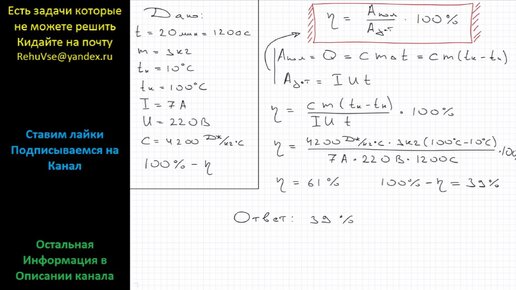 Есть задачи которые
не можете решить
Кидайте на почту
RehuVse@yandex.ru
Ставим лайки
Подписываемся на
Канал
Остальная
Информация в
Описании канала
Дано:
t = 20 мин = 1200 с
m = 3 кг
tн = 10°С
tк = 100°С
I = 7 А
U = 220 В
С = 4200 Дж/кг°С
100% - η
η = Aпол / Aзат · 100%
Aпол = Q = c m Δt = c m (tк - tн)
Aзат = I U t
η = c m (tк - tн) / I U t · 100%
η = 4200 Дж/кг°С · 3 кг (100°С - 10°С) / 7 А · 220 В · 1200 с · 100
η = 61% 100% - η = 39%
Ответ: 39%